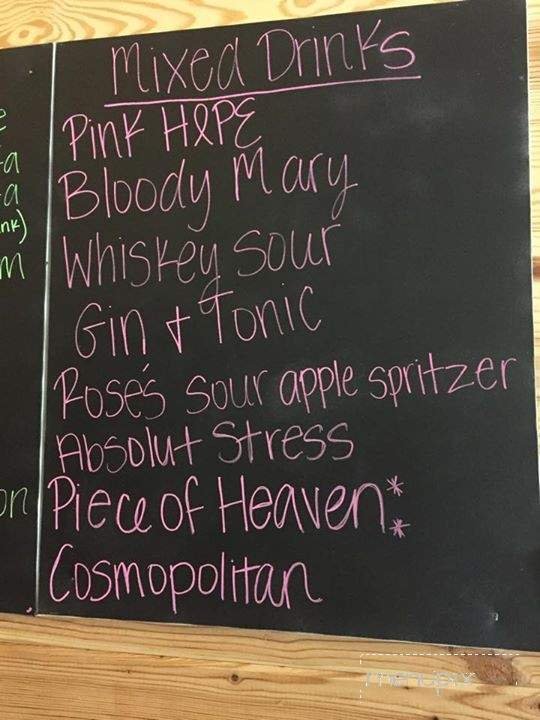 Mixed Drinks
Pink HOPE
Bloody Mary
Whiskey Sour
Gin + Tonic
Rose's sour apple spritzer
Absolut Stress
Piece of Heaven**
Cosmopolitan
a
a
nk)
m
on
menupix